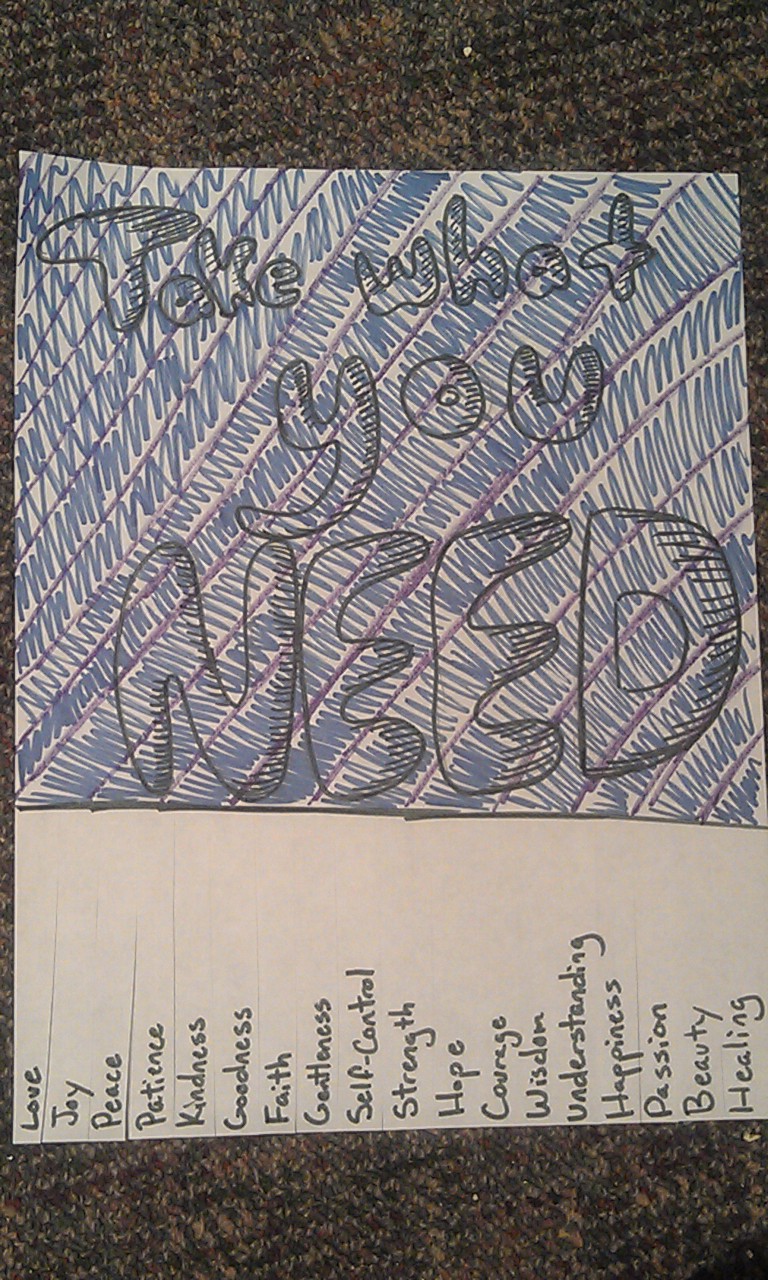 Take what
you
NEED
Love
Joy
Peace
Patience
Kindness
Goodness
Faith
Gentleness
Self-Control
Strength
Hope
Courage
Wisdom
Understanding
Happiness
Passion
Beauty
Healing